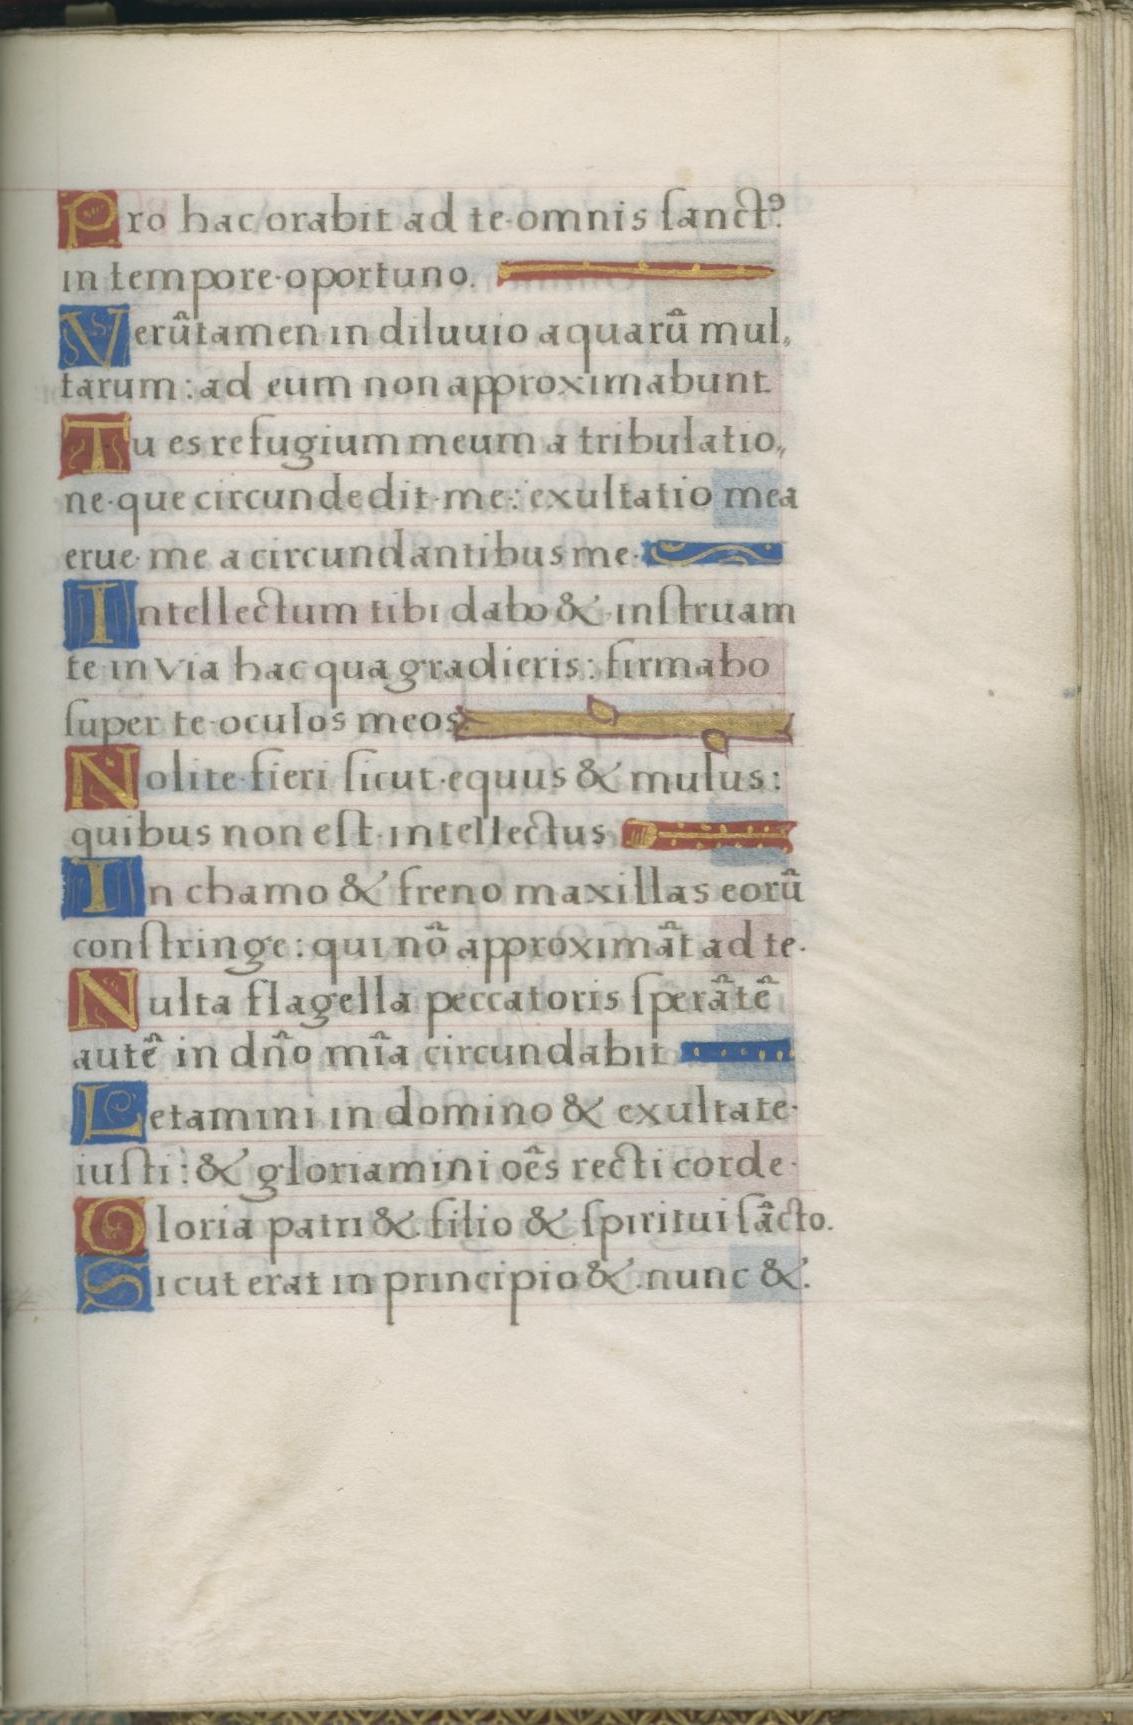 Pro hac orabit ad te omnis ſanctꝰ
in tempore oportuno.
Verũtamen in diluuio aquarũ mul,
tarum: ad eum non approximabunt
Tu es refugium meum a tribulatio,
ne que circundedit me: exultatio mea
erue me a circundantibus me.
Intellectum tibi dabo & inſtruam
te in via hac qua gradieris: firmabo
ſuper te oculos meos
Nolite fieri ſicut equus & mulus:
quibus non eſt intellectus
In chamo & freno maxillas eorũ
conſtringe: qui nõ approximãt ad te.
Nulta flagella peccatoris ſperãtẽ
autẽ in dño mĩa circundabit
Letamini in domino & exultate
iuſti: & gloriamini oẽs recti corde.
Gloria patri & filio & ſpiritui ſãcto.
Sicut erat in principio & nunc &.